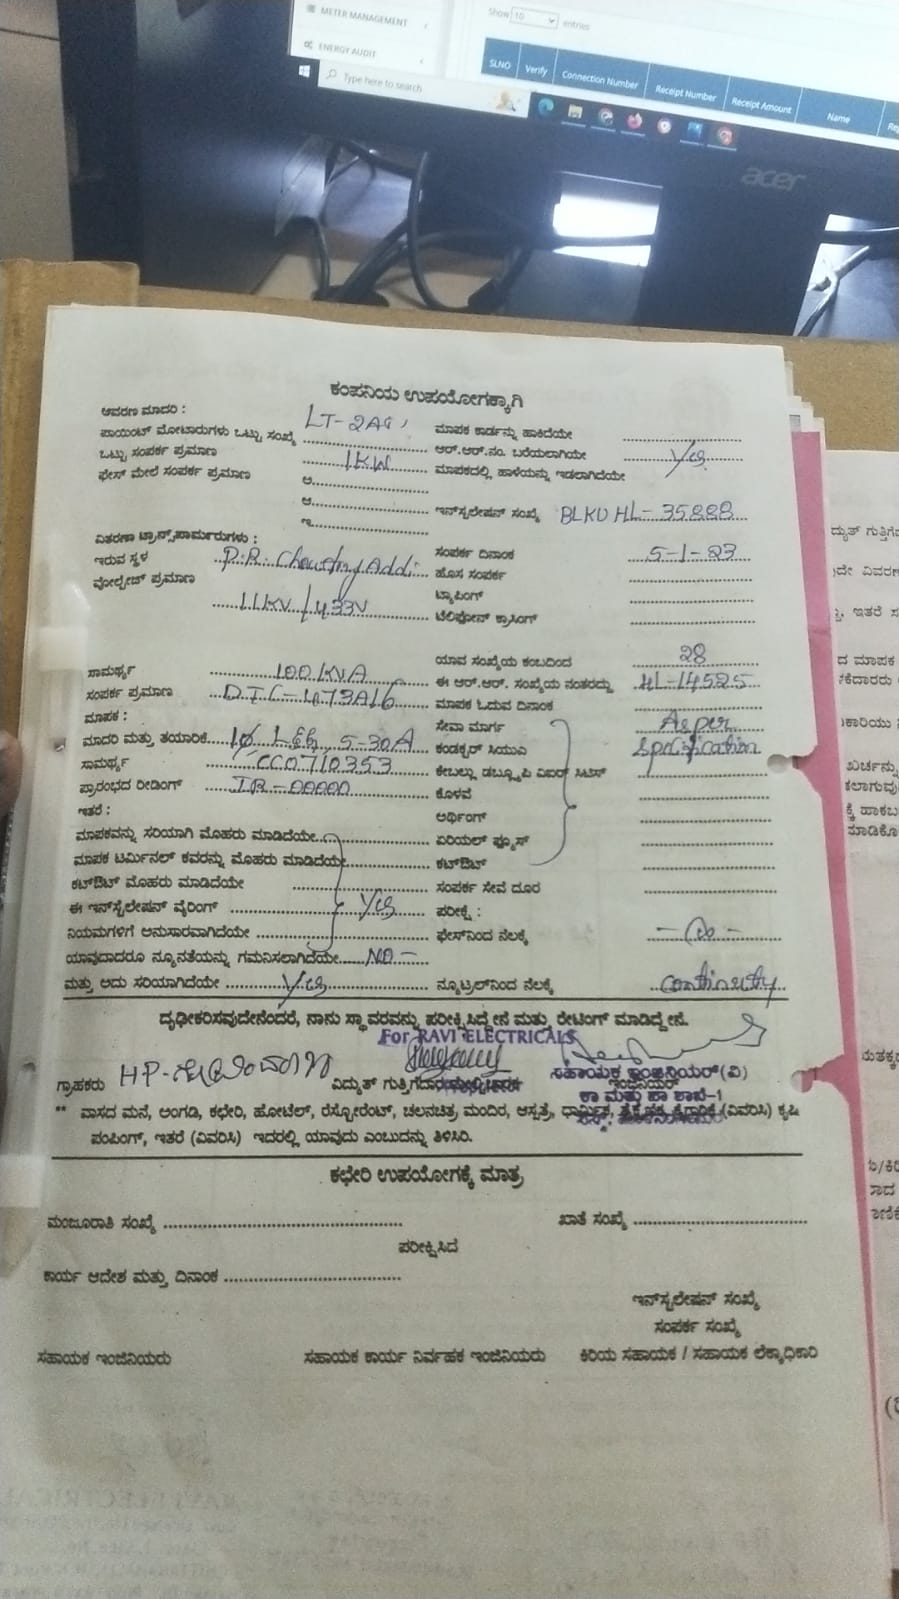 METER MANAGEMENT
ENERGY AUDIT
Show 10 entries
SLNO Verify Connection Number Receipt Number Receipt Amount Name
Type here to search
acer
ಕಂಪನಿಯ ಉಪಯೋಗಕ್ಕಾಗಿ
ಆವರಣ ಮಾದರಿ : LT-2A
ಪಾಯಿಂಟ್ ಮೋಟಾರುಗಳು ಒಟ್ಟು ಸಂಖ್ಯೆ ಮಾಪಕ ಕಾರ್ಡನ್ನು ಹಾಕಿದೆಯೇ
ಒಟ್ಟು ಸಂಪರ್ಕ ಪ್ರಮಾಣ 1KW ಆರ್.ಆರ್.ನಂ. ಬರೆಯಲಾಗಿಯೇ Yes
ಫೇಸ್ ಮೇಲೆ ಸಂಪರ್ಕ ಪ್ರಮಾಣ ಮಾಪಕದಲ್ಲಿ ಹಾಳೆಯನ್ನು ಇಡಲಾಗಿದೆಯೇ
ಅ.
ಆ. ಇನ್‌ಸ್ಟಲೇಷನ್ ಸಂಖ್ಯೆ BLKUHL-35888
ಇ.
ವಿತರಣಾ ಟ್ರಾನ್ಸ್‌ಫಾರ್ಮರುಗಳು :
ಇರುವ ಸ್ಥಳ P.R. ಸಂಪರ್ಕ ದಿನಾಂಕ 5-1-23
ವೋಲ್ಟೇಜ್ ಪ್ರಮಾಣ ಹೊಸ ಸಂಪರ್ಕ
ಟ್ಯಾಪಿಂಗ್
11KV/433V ಟೆಲಿಫೋನ್ ಕ್ರಾಸಿಂಗ್
ಯಾವ ಸಂಖ್ಯೆಯ ಕಂಬದಿಂದ 28
ಸಾಮರ್ಥ್ಯ 100KVA ಈ ಆರ್.ಆರ್. ಸಂಖ್ಯೆಯ ನಂತರದ್ದು HL-14525
ಸಂಪರ್ಕ ಪ್ರಮಾಣ DTC-473A16 ಮಾಪಕ ಓದುವ ದಿನಾಂಕ
ಮಾಪಕ : ಸೇವಾ ಮಾರ್ಗ As per
ಮಾದರಿ ಮತ್ತು ತಯಾರಿಕೆ 1Ø L&G, 5-30A ಕಂಡಕ್ಟರ್ ಸಿಯುಎ
ಸಾಮರ್ಥ್ಯ CC0710353 ಕೇಬಲ್ಲು ಡಬ್ಲ್ಯೂಪಿ ವಿಐಆರ್
ಪ್ರಾರಂಭದ ರೀಡಿಂಗ್ IR-00000 ಕೊಳವೆ
ಇತರೆ : ಅರ್ಥಿಂಗ್
ಮಾಪಕವನ್ನು ಸರಿಯಾಗಿ ಮೊಹರು ಮಾಡಿದೆಯೇ ಏರಿಯಲ್ ಫ್ಯೂಸ್
ಮಾಪಕ ಟರ್ಮಿನಲ್ ಕವರನ್ನು ಮೊಹರು ಮಾಡಿದೆಯೇ ಕಟ್‌ಔಟ್
ಕಟ್‌ಔಟ್ ಮೊಹರು ಮಾಡಿದೆಯೇ ಸಂಪರ್ಕ ಸೇವೆ ದೂರ
ಈ ಇನ್‌ಸ್ಟಲೇಷನ್ ವೈರಿಂಗ್ Yes ಪರೀಕ್ಷೆ :
ನಿಯಮಗಳಿಗೆ ಅನುಸಾರವಾಗಿದೆಯೇ ಫೇಸ್‌ನಿಂದ ನೆಲಕ್ಕೆ
ಯಾವುದಾದರೂ ನ್ಯೂನತೆಯನ್ನು ಗಮನಿಸಲಾಗಿದೆಯೇ NO -
ಮತ್ತು ಅದು ಸರಿಯಾಗಿದೆಯೇ Yes ನ್ಯೂಟ್ರಲ್‌ನಿಂದ ನೆಲಕ್ಕೆ continuity
ದೃಢೀಕರಿಸವುದೇನೆಂದರೆ, ನಾನು ಸ್ಥಾವರವನ್ನು ಪರೀಕ್ಷಿಸಿದ್ದೇನೆ ಮತ್ತು ರೇಟಿಂಗ್ ಮಾಡಿದ್ದೇನೆ.
For RAVI ELECTRICALS
ಗ್ರಾಹಕರು ವಿದ್ಯುತ್ ಸಹಾಯಕ ಇಂಜಿನಿಯರ್(ವಿ)
ಕಾ ಮತ್ತು ಪಾ ಶಾಖೆ-1
** ವಾಸದ ಮನೆ, ಅಂಗಡಿ, ಕಛೇರಿ, ಹೋಟೆಲ್, ರೆಸ್ಟೋರೆಂಟ್, ಚಲನಚಿತ್ರ, ಮಂದಿರ, ಆಸ್ಪತ್ರೆ, ಧಾರ್ಮಿಕ, (ವಿವರಿಸಿ) ಕೃಷಿ
ಪಂಪಿಂಗ್, ಇತರೆ (ವಿವರಿಸಿ) ಇದರಲ್ಲಿ ಯಾವುದು ಎಂಬುದನ್ನು ತಿಳಿಸಿರಿ.
ಕಛೇರಿ ಉಪಯೋಗಕ್ಕೆ ಮಾತ್ರ
ಮಂಜೂರಾತಿ ಸಂಖ್ಯೆ ಖಾತೆ ಸಂಖ್ಯೆ
ಪರೀಕ್ಷಿಸಿದ
ಕಾರ್ಯ ಆದೇಶ ಮತ್ತು ದಿನಾಂಕ
ಇನ್‌ಸ್ಟಲೇಷನ್ ಸಂಖ್ಯೆ
ಸಂಪರ್ಕ ಸಂಖ್ಯೆ
ಸಹಾಯಕ ಇಂಜಿನಿಯರು ಸಹಾಯಕ ಕಾರ್ಯ ನಿರ್ವಹಕ ಇಂಜಿನಿಯರು ಕಿರಿಯ ಸಹಾಯಕ / ಸಹಾಯಕ ಲೆಕ್ಕಾಧಿಕಾರಿ